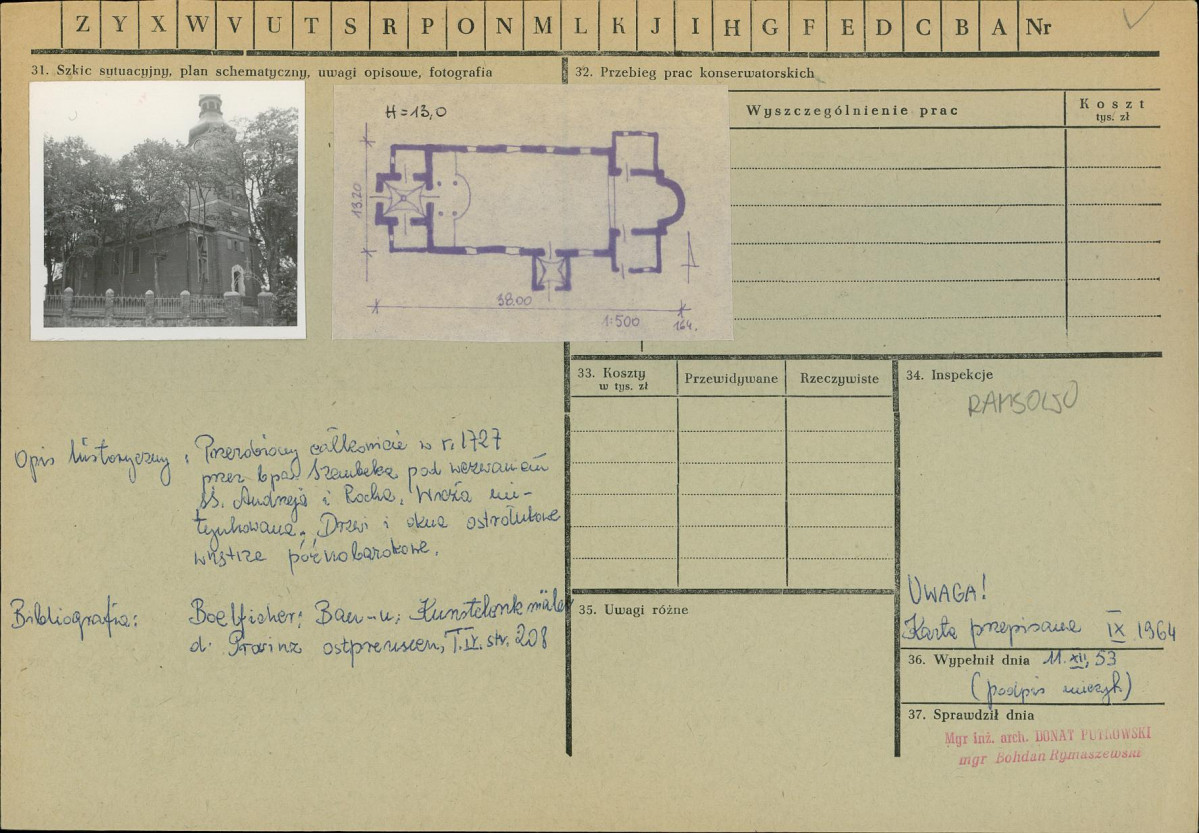 Z Y X W V U T S R P O N M L K J I H G F E D C B A Nr
31. Szkic sytuacyjny, plan schematyczny, uwagi opisowe, fotografia
H = 13,0
13.20
38.00
1:500
164.
32. Przebieg prac konserwatorskich
Wyszczególnienie prac
Koszt
tys. zł
33. Koszty
w tys. zł
Przewidywane
Rzeczywiste
34. Inspekcje
RAMSOWO
Opis historyczny: Przerobiony całkowicie w r. 1727
przez bpa Szembeka pod wezwaniem
śś. Andrzeja i Rocha. Wieża nie-
tynkowana. Drzwi i okna ostrołukowe
wnętrze późnobarokowe.
Bibliografia: Boetticher; Bau-u; Kunstdenkmäler
d. Provinz ostpreussen, T. IV. str. 208
35. Uwagi różne
UWAGA!
Karta przepisana IX 1964
36. Wypełnił dnia 11. XII. 53
(podpis nieczyt)
37. Sprawdził dnia
Mgr inż. arch. DONAT PUTKOWSKI
mgr Bohdan Rymaszewski